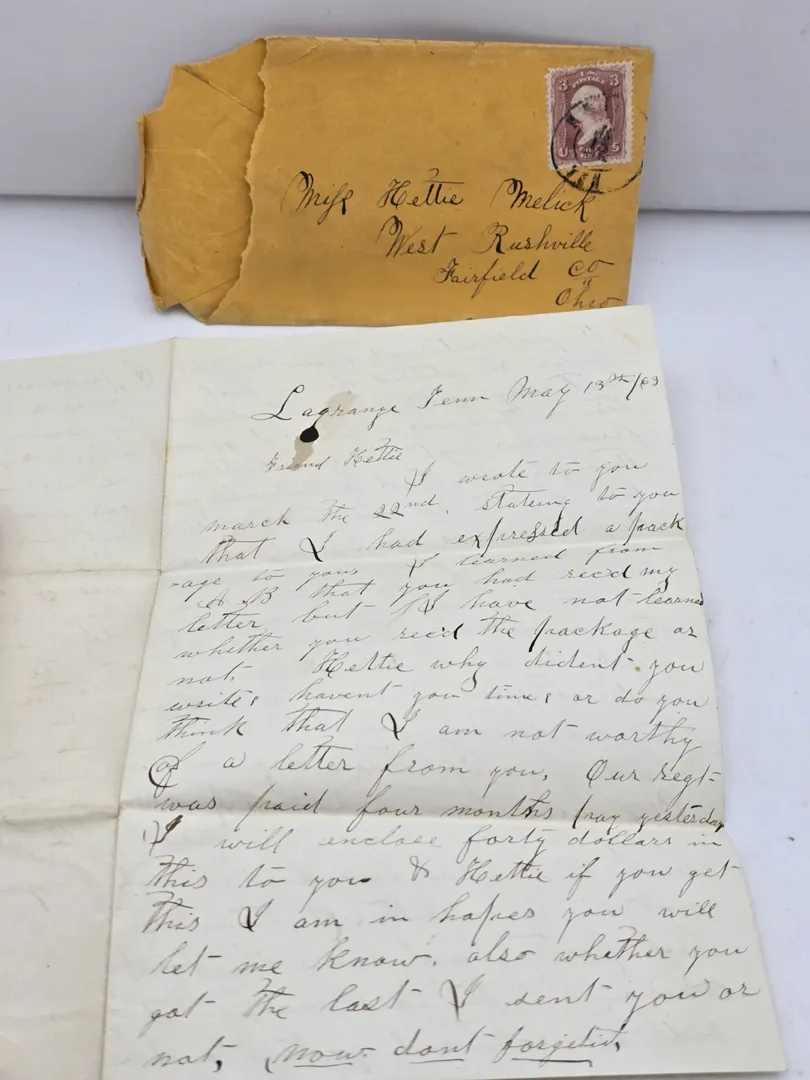 3 3
U.S. POSTAGE
U S
Miss Hettie Melick
West Rushville
Fairfield Co
Ohio
Lagrange Tenn May 13th/63
Friend Hettie
I wrote to you
march the 22nd. stateing to you
that I had expressed a pack
-age to you I learned from
A B that you had rec'd my
letter but I have not learned
whether you rec'd the package or
not. Hettie why dident you
write, havent you time, or do you
think that I am not worthy
of a letter from you. Our regt-
was paid four months pay yesterday
I will enclose forty dollars in
this to you & Hettie if you get
this I am in hopes you will
let me know. also whether you
got the last I sent you or
not, now dont forgetit,